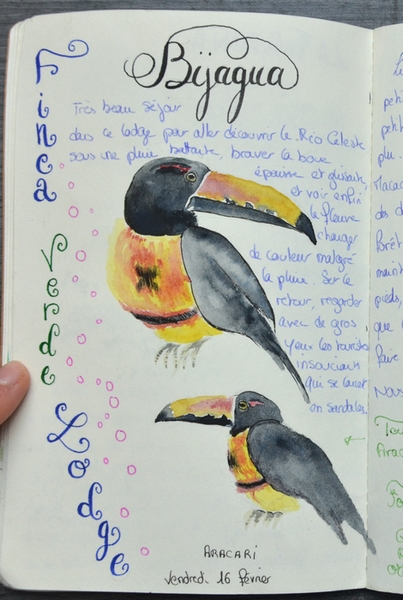 Bijagua
Finca
Verde
Lodge
Très beau séjour
dans ce lodge pour aller découvrir le Rio Celeste
sous une pluie battante, braver la boue
épaisse et glissante
et voir enfin
le fleuve
changer
de couleur malgré
la pluie. Sur le
retour, regarder
avec de gros
yeux les touristes
insouciants
qui se lancent
en sandales.
ARACARI
Vendredi 16 février